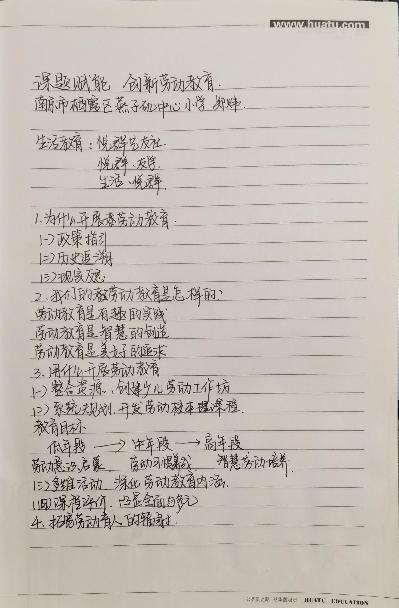 www.huatu.com
课题赋能 创新劳动教育
南京市栖霞区燕子矶中心小学
生活教育:悦群
悦群、友学
生活、悦群
1.为什么开展劳动教育
(一)政策指引
(二)历史追溯
(三)现实反思
2.我们的劳动教育是怎样的?
劳动教育是有趣的实践
劳动教育是智慧的创造
劳动教育是美好的追求
3.用什么开展劳动教育
(一)整合资源,创建少儿劳动工作坊
(二)系统规划,开发劳动校本课程.
教育目标
低年段 → 中年段 → 高年段
劳动意识启蒙 劳动习惯养成 智慧劳动培养.
(三)多维活动 深化劳动教育内涵.
(四)课程评价,凸显全面与多元
4.拓展劳动育人的辐射
HUATU EDUCATION